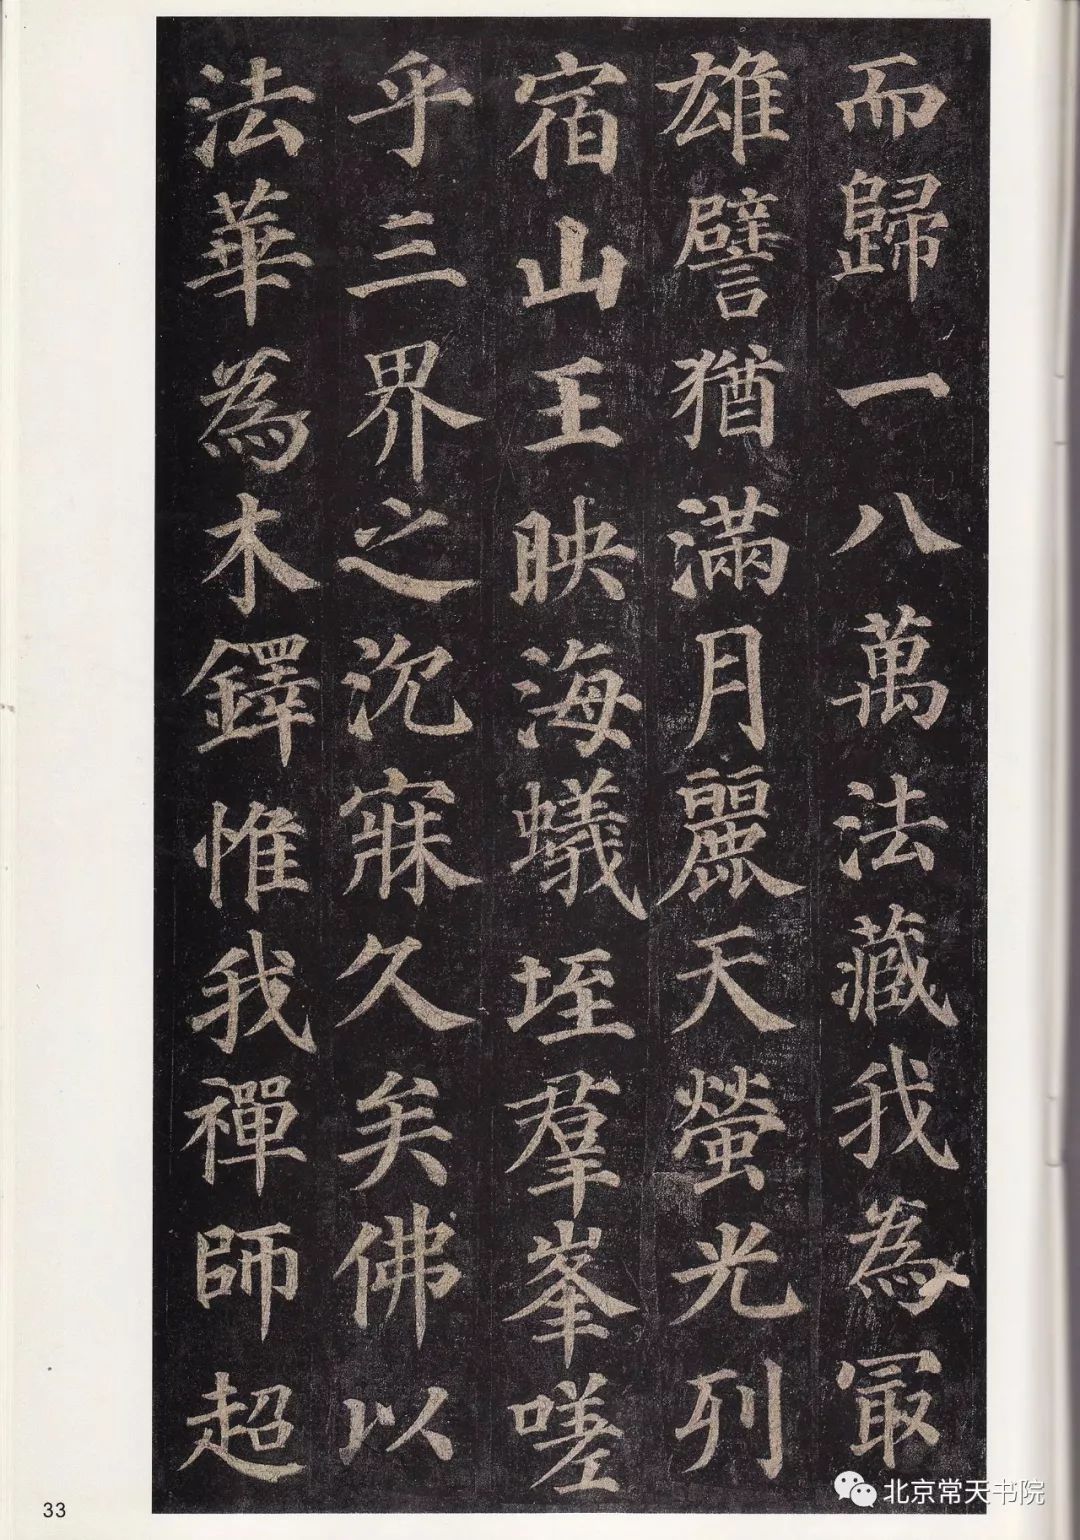 而歸一八萬法藏我為冣
雄譬猶滿月麗天螢光列
宿山王映海蟻垤羣峯嗟
乎三界之沉寐久矣佛以
法華為木鐸惟我禪師超
33
北京常天书院